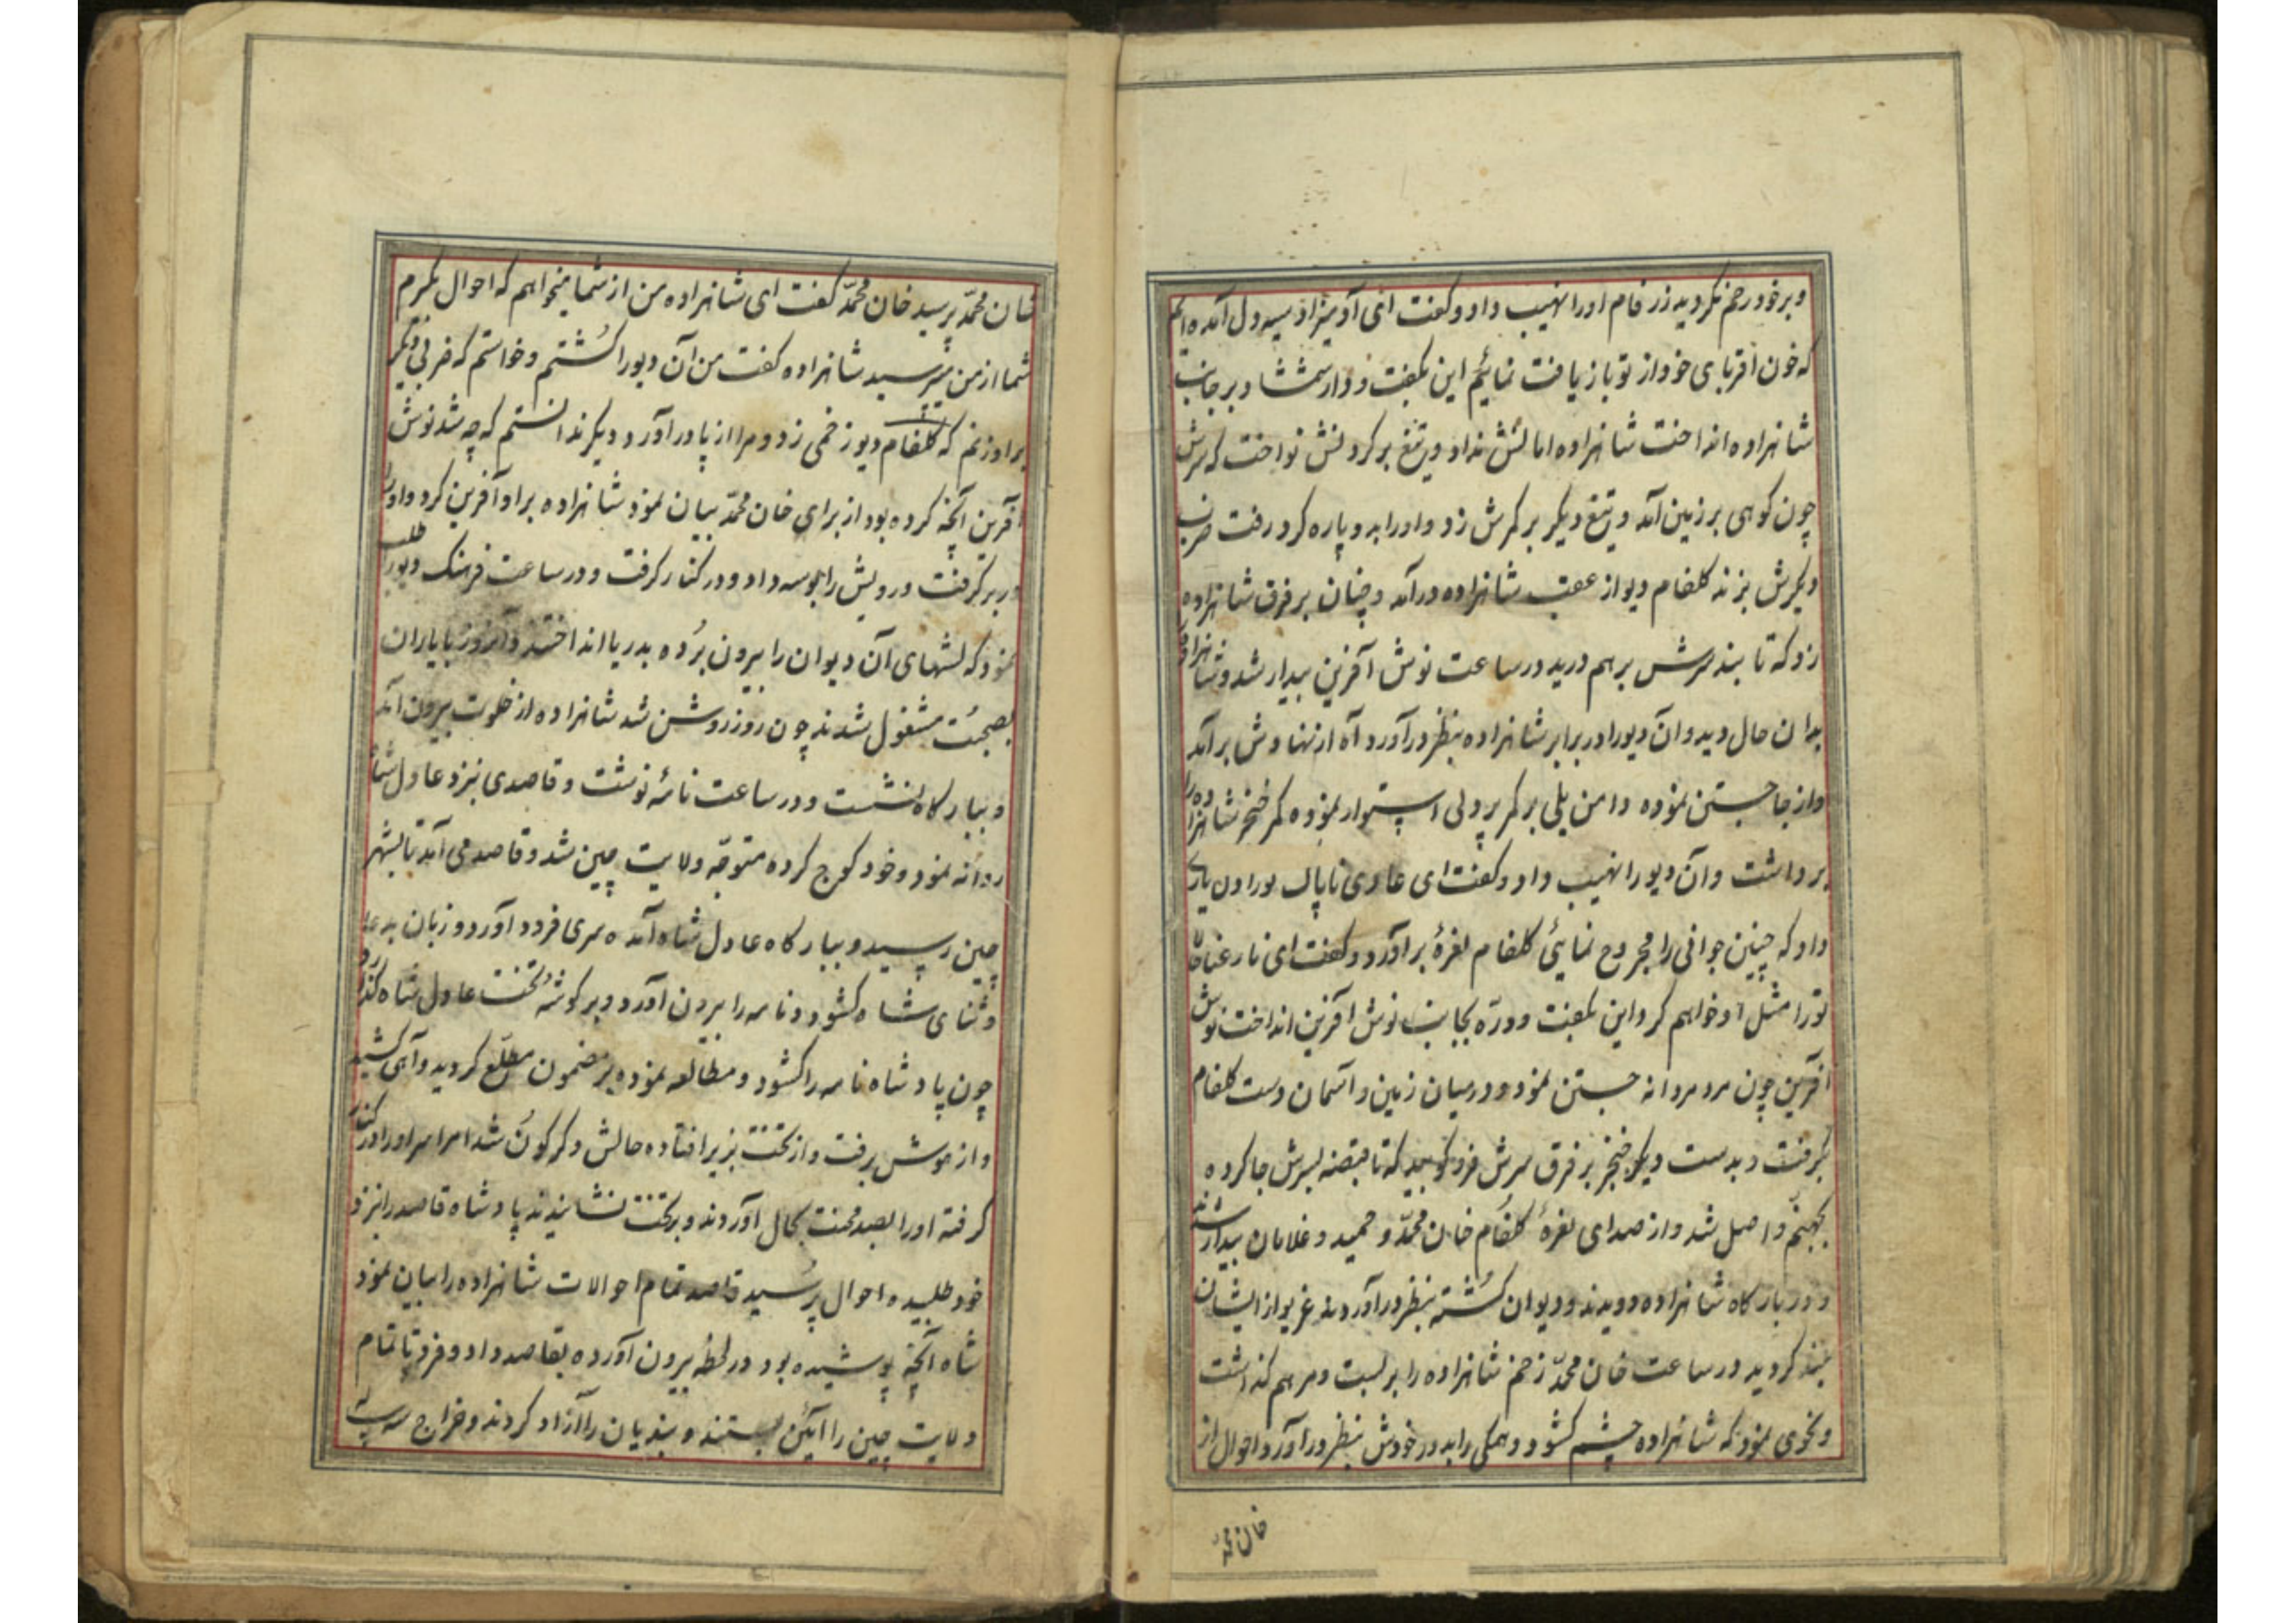 و بر خود رحم نکردید زرفام او را نهیب داد و کفت ای آدمیزاد سیه دل آمده ایم
که خون اقربای خود از تو باز یافت نمائیم این بکفت و دار شمشاد بر جانب
شاهزاده انداخت شاهزاده امانش نداد و تیغ بر کردنش نواخت که سرش
چون کوهی بر زمین آمد و تیغ دیکر بر کمرش زد و او را بدو پاره کرد رفت ضرب
دیکرش بزند کلفام دیو از عقب شاهزاده در آمد و چنان بر فرق شاهزاده
زد که تا بند سرش برهم درید در ساعت نوش آفرین بیدار شد و شاهزاده را
بدان حال دید و آن دیو را در برابر شاهزاده بنظر در آورد آه از نهادش بر آمد
و از جا جستن نموده دامن یلی بر کمر پر دلی استوار نموده کمر خنجر شاهزاده را
برداشت و آن دیو را نهیب داد و کفت ای عادی ناپاک تو را دل یاری
داد که چنین جوانی را مجروح نمائی کلفام نعرهٔ بر آورد و کفت ای نار عنا حالا
تو را مثل او خواهم کرد این بکفت و درّه بجانب نوش آفرین انداخت نوش
آفرین چون مرد مردانه جستن نمود و در میان زمین و آسمان دست کلفام
بکرفت و بدست دیکر خنجر بر فرق سرش فرو کوبید که تا قبضه بسرش جا کرده
بجهنّم واصل شد و از صدای نعرهٔ کلفام خان محمّد و حمید و غلامان بیدار شدند
و در بارکاه شاهزاده دویدند و دیوان کشته بنظر در آوردند غریو از ایشان
بلند کردید در ساعت خان محمّد زخم شاهزاده را بر بست و مرهم کذاشت
و نحوی نمود که شاهزاده چشم کشود و همکی را بدور خودش بنظر در آورد احوال از
خان محمّد
شان محمّد پرسید خان محمّد کفت ای شاهزاده من از شما میخواهم که احوال بکیرم
شما از من میپرسید شاهزاده کفت من آن دیو را کشتم و خواستم که ضربی دیکر
بر او زنم که کلفام دیو زخمی زد و مرا از پا در آورد و دیکر ندانستم که چه شد نوش
آفرین آنچه کرده بود از برای خان محمّد بیان نمود شاهزاده بر او آفرین کرد و او را
در بر کرفت و رویش را بوسه داد و در کنار کرفت و در ساعت فرهنک دیو را طلب
نمود که لشهای آن دیوان را بیرون برده بدریا انداختند و آنروز با یاران
بصحبت مشغول شدند چون روز روشن شد شاهزاده از خلوت بیرون آمد
و ببارکاه نشست و در ساعت نامهٔ نوشت و قاصدی بنزد عادل شاه
روانه نمود و خود کوچ کرده متوجّه ولایت چین شد و قاصد می آمد تا بشهر
چین رسید و ببارکاه عادل شاه آمده سری فرود آورد و زبان به دعا
و ثنای شاه کشود و نامه را بیرون آورد و بر کوشهٔ تخت عادل شاه کذارد
چون پادشاه نامه را کشود و مطالعه نموده بر مضمون مطّلع کردید و آهی کشید
و از هوش برفت و از تخت بزیر افتاده حالش دکرکون شد امرا سر او را در کنار
کرفته او را بصد محنت بحال آوردند و بر تخت نشانیدند پادشاه قاصد را بنزد
خود طلبیده احوال پرسید قاصد تمام احوالات شاهزاده را بیان نمود
شاه آنچه پوشیده بود در لحظه بیرون آورده بقاصد داد و فرمود تا تمام
ولایت چین را آئین بستند و بندیان را آزاد کردند و خراج سه